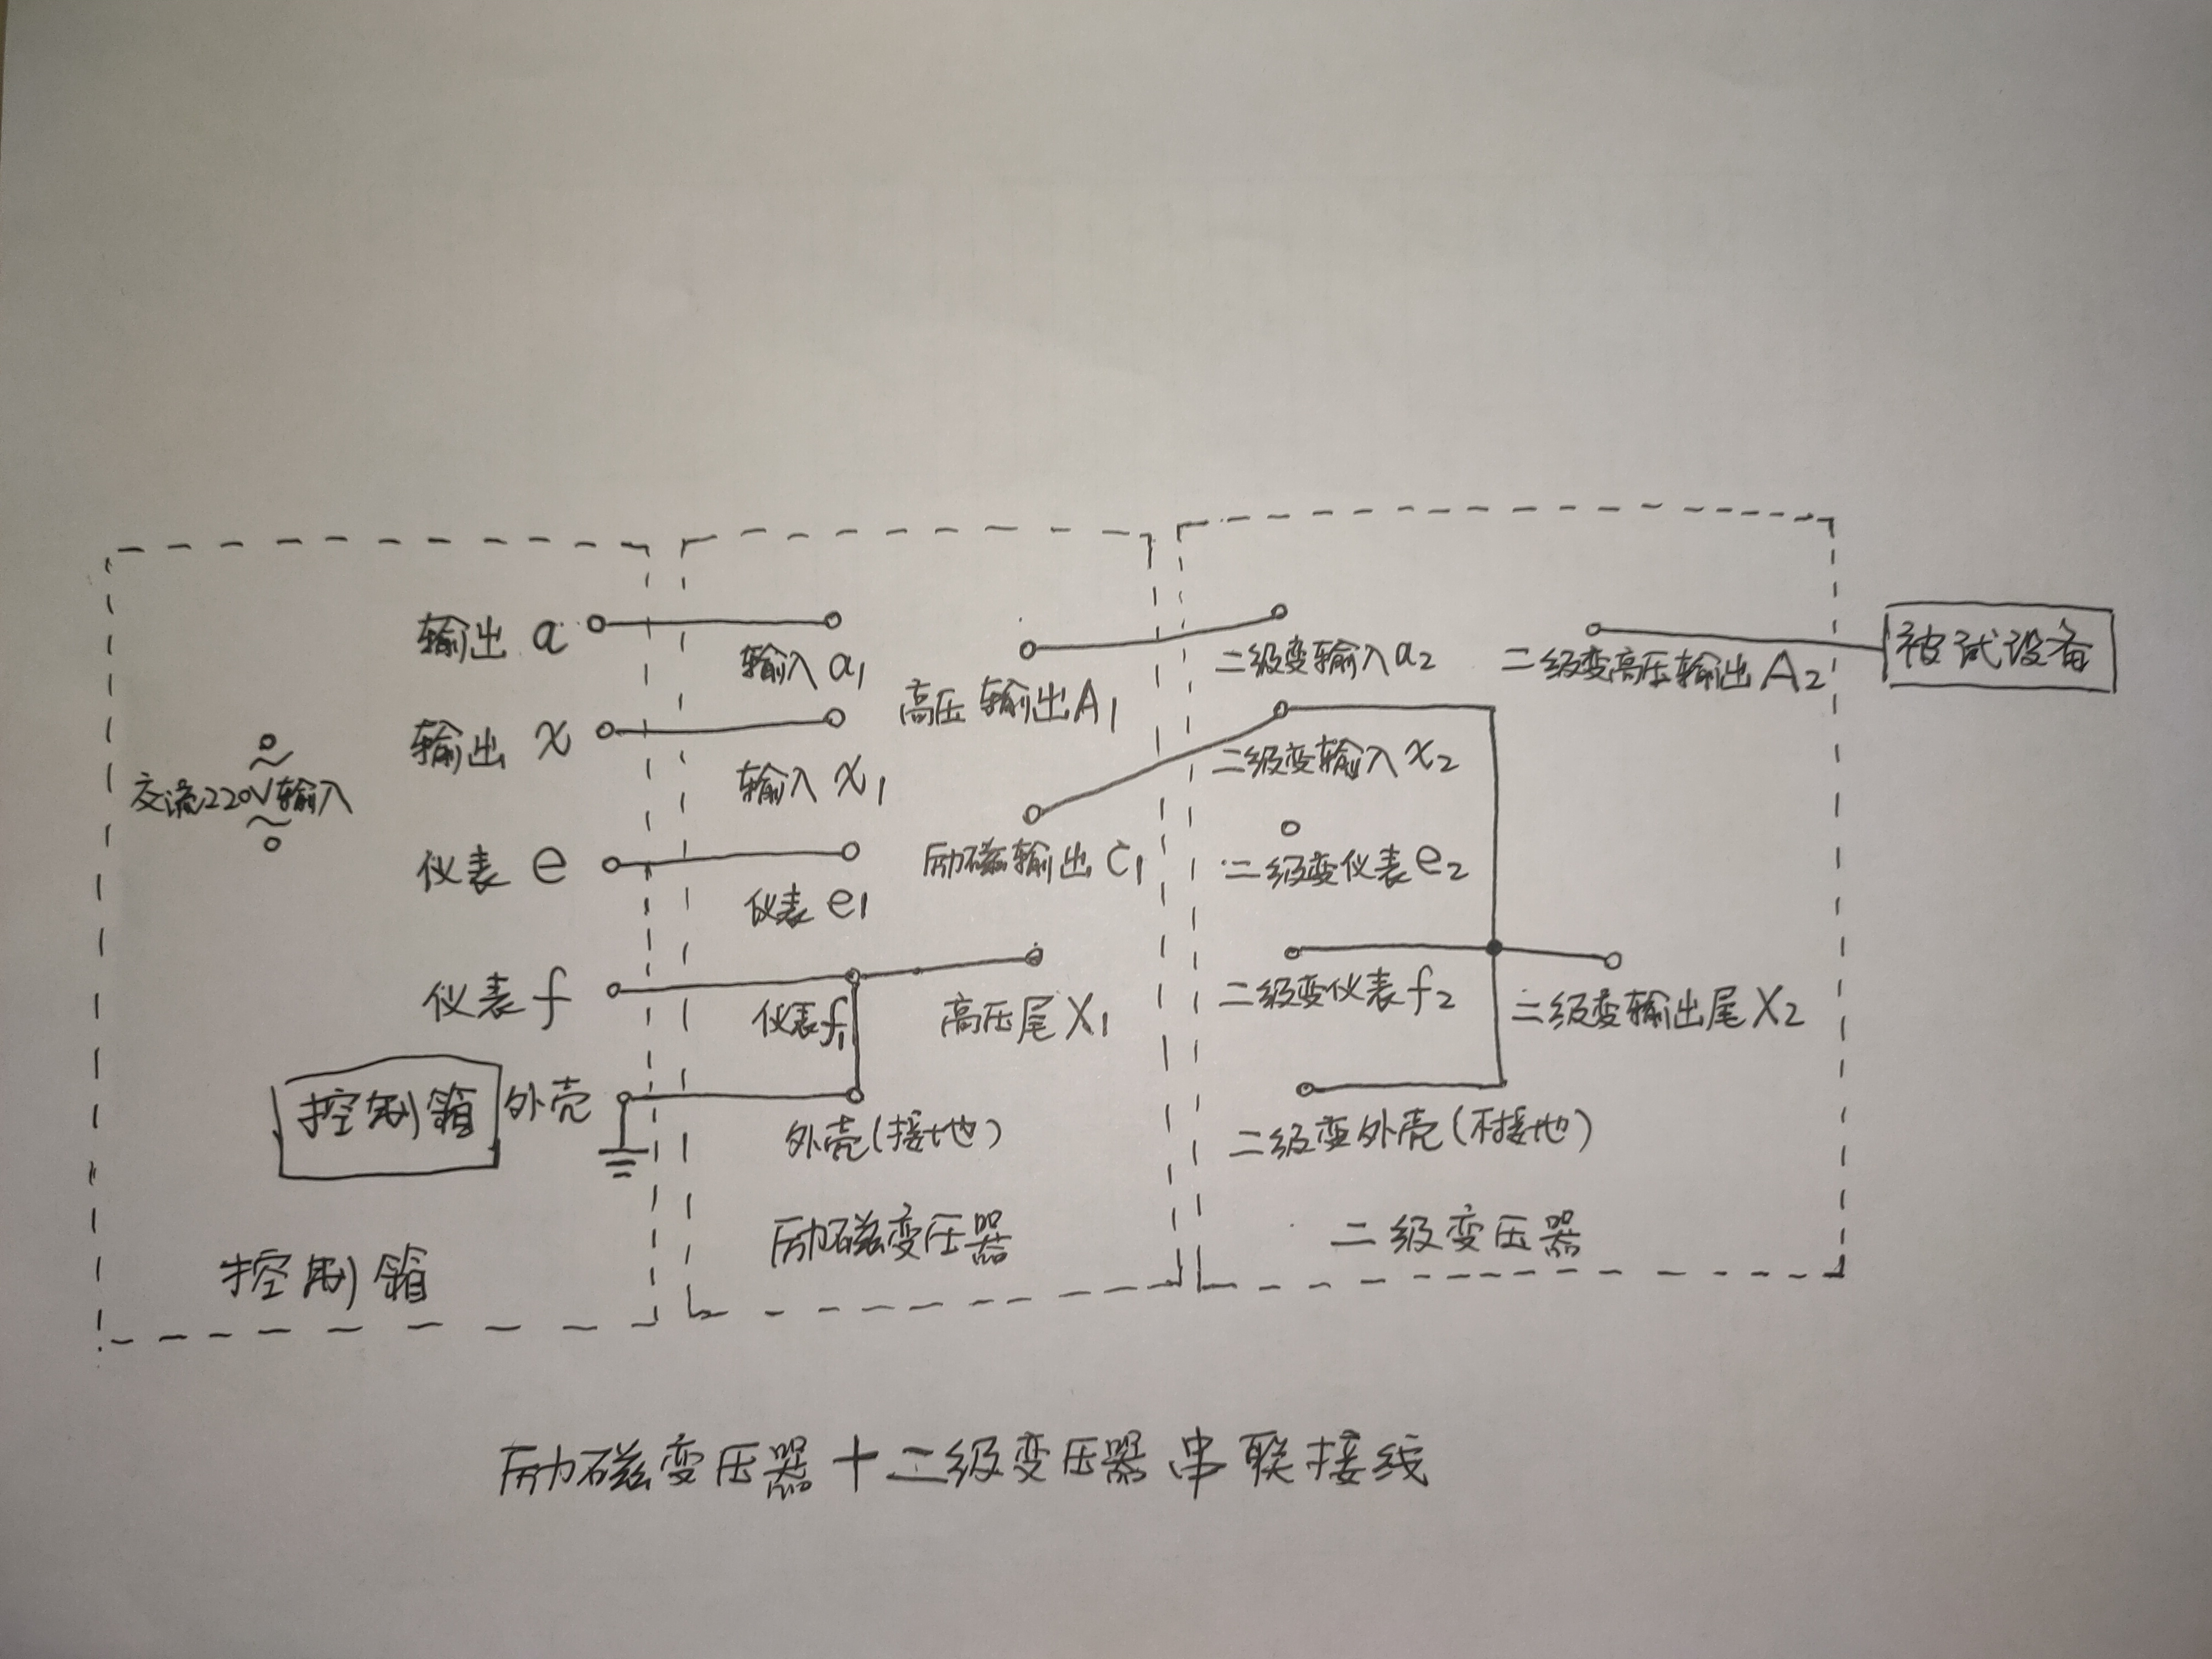 输出 a
输入 a1
高压 输出A1
二级变输入a2
二级变高压输出A2
被试设备
输出 x
输入 x1
二级变输入 x2
交流220V输入
仪表 e
仪表 e1
励磁输出 C1
二级变仪表e2
仪表 f
仪表f1
高压尾 X1
二级变仪表f2
二级变输出尾X2
控制箱 外壳
外壳(接地)
二级变外壳(不接地)
控制箱
励磁变压器
二级变压器
励磁变压器+二级变压器 串联接线